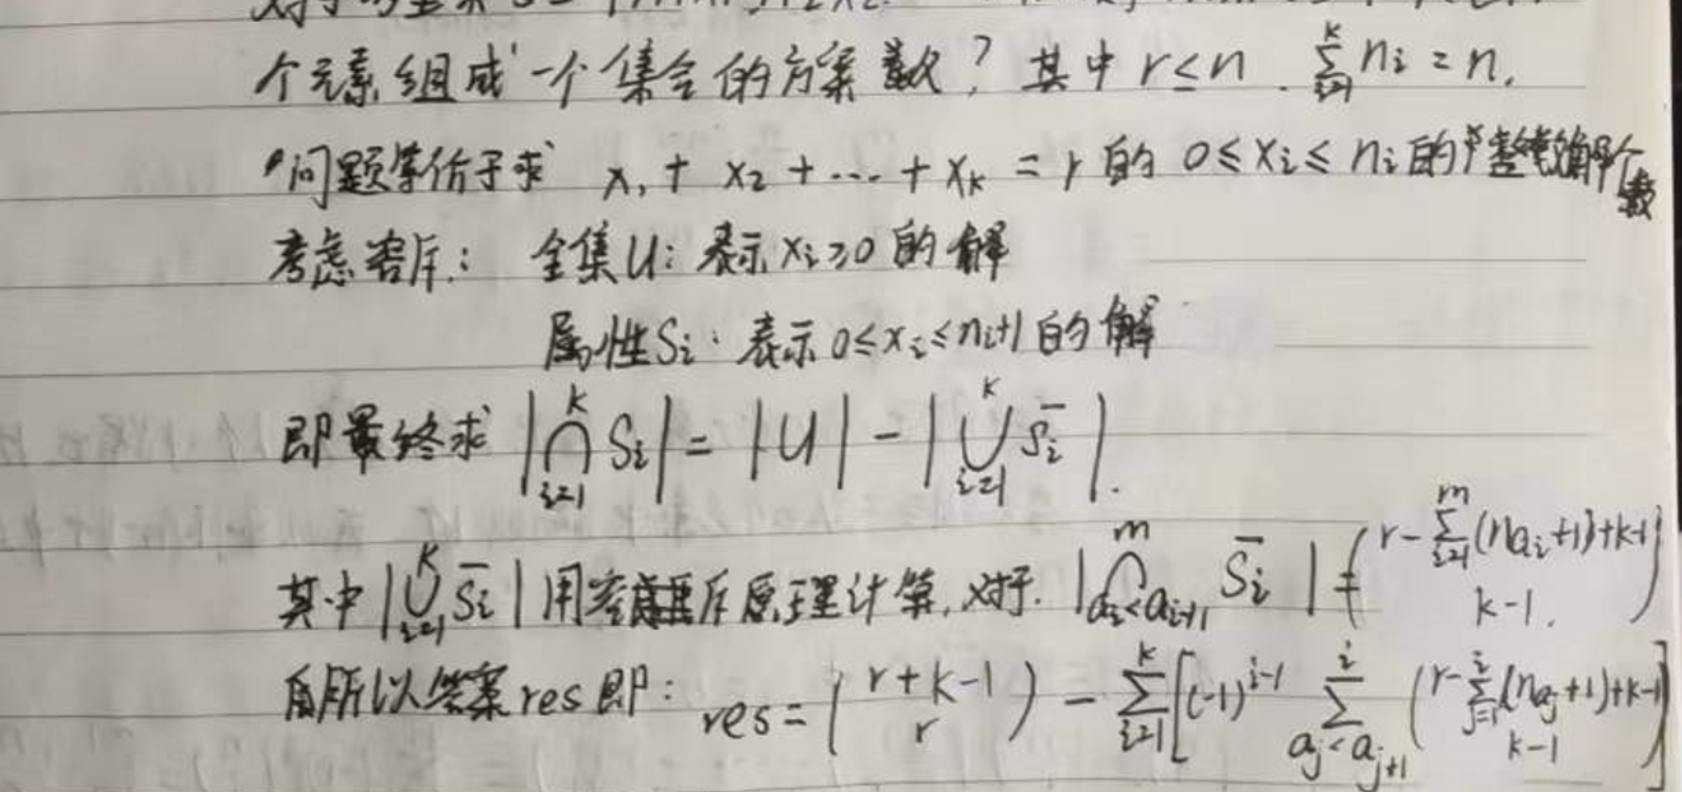 个元素组成一个集合的方案数? 其中 r≤n. ∑_{i=1}^{k} n_i = n.
问题等价于求 x₁ + x₂ + ... + x_k = r 的 0≤x_i≤n_i 的整数解个数
考虑容斥: 全集U: 表示 x_i≥0 的解
属性S_i: 表示 0≤x_i≤n_i+1 的解
即最终求 |⋂_{i=1}^{k} S_i| = |U| - |⋃_{i=1}^{k} \bar{S_i}|.
其中 |⋃_{i=1}^{k} \bar{S_i}| 用容斥原理计算,对于 |⋂_{a_i<a_{i+1}}^{m} \bar{S_i}| = \binom{r-∑_{i=1}^{m}(n_{a_i}+1)+k-1}{k-1}.
所以答案res即: res = \binom{r+k-1}{r} - ∑_{i=1}^{k}[(-1)^{i-1} ∑_{a_j<a_{j+1}}^{i} \binom{r-∑_{j=1}^{i}(n_{a_j}+1)+k-1}{k-1}]